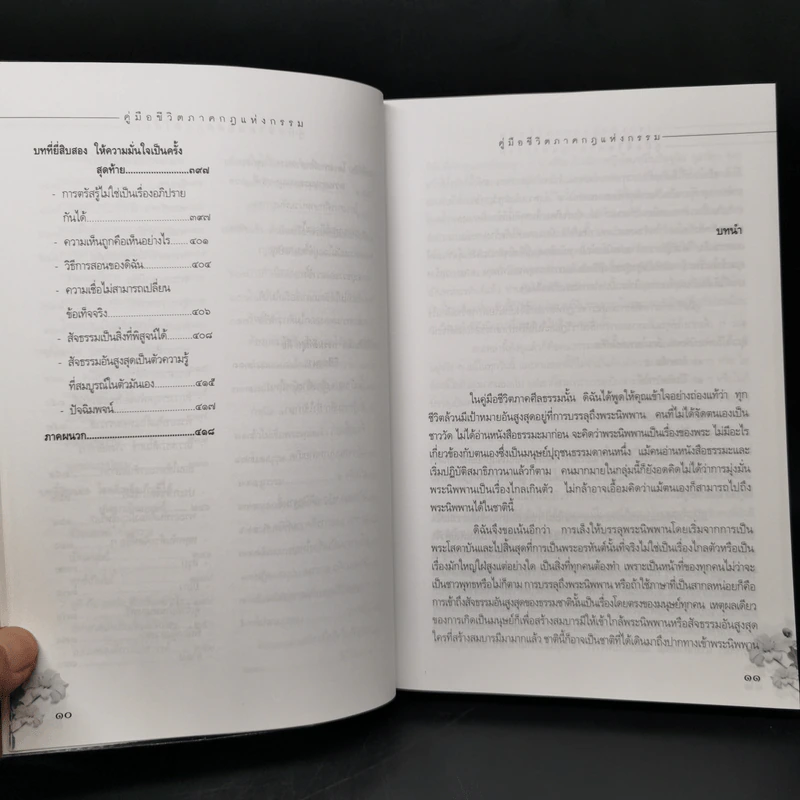 คู่มือชีวิตภาคกฎแห่งกรรม
บทที่ยี่สิบสอง ให้ความมั่นใจเป็นครั้ง
สุดท้าย........................๓๙๗
- การตรัสรู้ไม่ใช่เป็นเรื่องอภิปราย
กันได้...........................๓๙๗
- ความเห็นถูกคือเห็นอย่างไร......๔๐๑
- วิธีการสอนของดิฉัน.............๔๐๔
- ความเชื่อไม่สามารถเปลี่ยน
ข้อเท็จจริง.....................๔๐๖
- สัจธรรมเป็นสิ่งที่พิสูจน์ได้........๔๐๘
- สัจธรรมอันสูงสุดเป็นตัวความรู้
ที่สมบูรณ์ในตัวมันเอง...........๔๑๕
- ปัจฉิมพจน์.....................๔๑๗
ภาคผนวก..............................๔๑๘
๑๐
คู่มือชีวิตภาคกฎแห่งกรรม
บทนำ
ในคู่มือชีวิตภาคศีลธรรมนั้น ดิฉันได้พูดให้คุณเข้าใจอย่างถ่องแท้ว่า ทุก
ชีวิตล้วนมีเป้าหมายอันสูงสุดอยู่ที่การบรรลุถึงพระนิพพาน คนที่ไม่ได้จัดตนเองเป็น
ชาววัด ไม่ได้อ่านหนังสือธรรมะมาก่อน จะคิดว่าพระนิพพานเป็นเรื่องของพระ ไม่มีอะไร
เกี่ยวข้องกับตนเองซึ่งเป็นมนุษย์ปุถุชนธรรมดาคนหนึ่ง แม้คนอ่านหนังสือธรรมะและ
เริ่มปฏิบัติสมาธิภาวนาแล้วก็ตาม คนมากมายในกลุ่มนี้ก็ยังอดคิดไม่ได้ว่าการมุ่งมั่น
พระนิพพานเป็นเรื่องไกลเกินตัว ไม่กล้าอาจเอื้อมคิดว่าแม้ตนเองก็สามารถไปถึง
พระนิพพานได้ในชาตินี้
ดิฉันจึงขอเน้นอีกว่า การเล็งให้บรรลุพระนิพพานโดยเริ่มจากการเป็น
พระโสดาบันและไปสิ้นสุดที่การเป็นพระอรหันต์นั้นที่จริงไม่ใช่เป็นเรื่องไกลตัวหรือเป็น
เรื่องมักใหญ่ใฝ่สูงแต่อย่างใด เป็นสิ่งที่ทุกคนต้องทำ เพราะเป็นหน้าที่ของทุกคนไม่ว่าจะ
เป็นชาวพุทธหรือไม่ก็ตาม การบรรลุถึงพระนิพพาน หรือถ้าใช้ภาษาที่เป็นสากลหน่อยก็คือ
การเข้าถึงสัจธรรมอันสูงสุดของธรรมชาตินั้นเป็นเรื่องโดยตรงของมนุษย์ทุกคน เหตุผลเดียว
ของการเกิดเป็นมนุษย์ก็เพื่อสร้างสมบารมีให้เข้าใกล้พระนิพพานหรือสัจธรรมอันสูงสุด
ใครที่สร้างสมบารมีมามากแล้ว ชาตินี้ก็อาจเป็นชาติที่ได้เดินมาถึงปากทางเข้าพระนิพพาน
๑๑